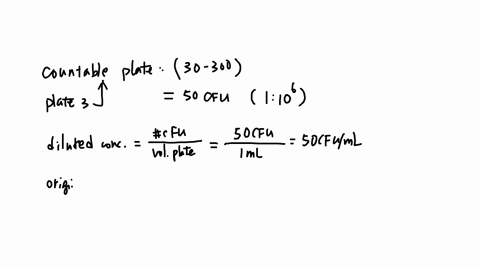 Countable plate : (30-300)
plate 3 = 50 CFU (1:10⁶)
diluted conc. = #CFU / vol. plate = 50CFU / 1mL = 50CFU/mL
orig: